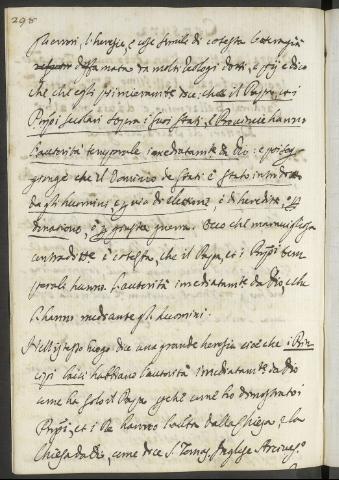 298
gl'errori, l'heresie, e cose simile di cotesta lettera già
diffamata da molti Teologi dotti, e poi dice
che che egli primieramente dice, che il Papa, et i
Prencipi secolari sopra i suoi stati, e Provincie hanno
l'autorità temporale imediatamte da Dio, e poi sog
gionge che il Dominio de stati è stato introdotto
da gli huomini per via di elezione, ò di heredità, ò per
donatione, ò per giusta guerra. Ecco che maravigliosa
contradittne è cotesta, che il Papa, et i Prpi tem
porali hanno l'autorità imediatamte da Dio, e che
l'hanno mediante gl'huomini.
Nell'istesso luogo dice una grande heresia cioè che i Prin
cipi laici habbino l'autorità imediatamte da Dio
come hà solo il Papa perche come hò dimostrato i
Prpi, et i Re hanno l'autta dalla Chiesa, e la
Chiesa da Dio, come dice S. Tomaso Inglese Arcivesco